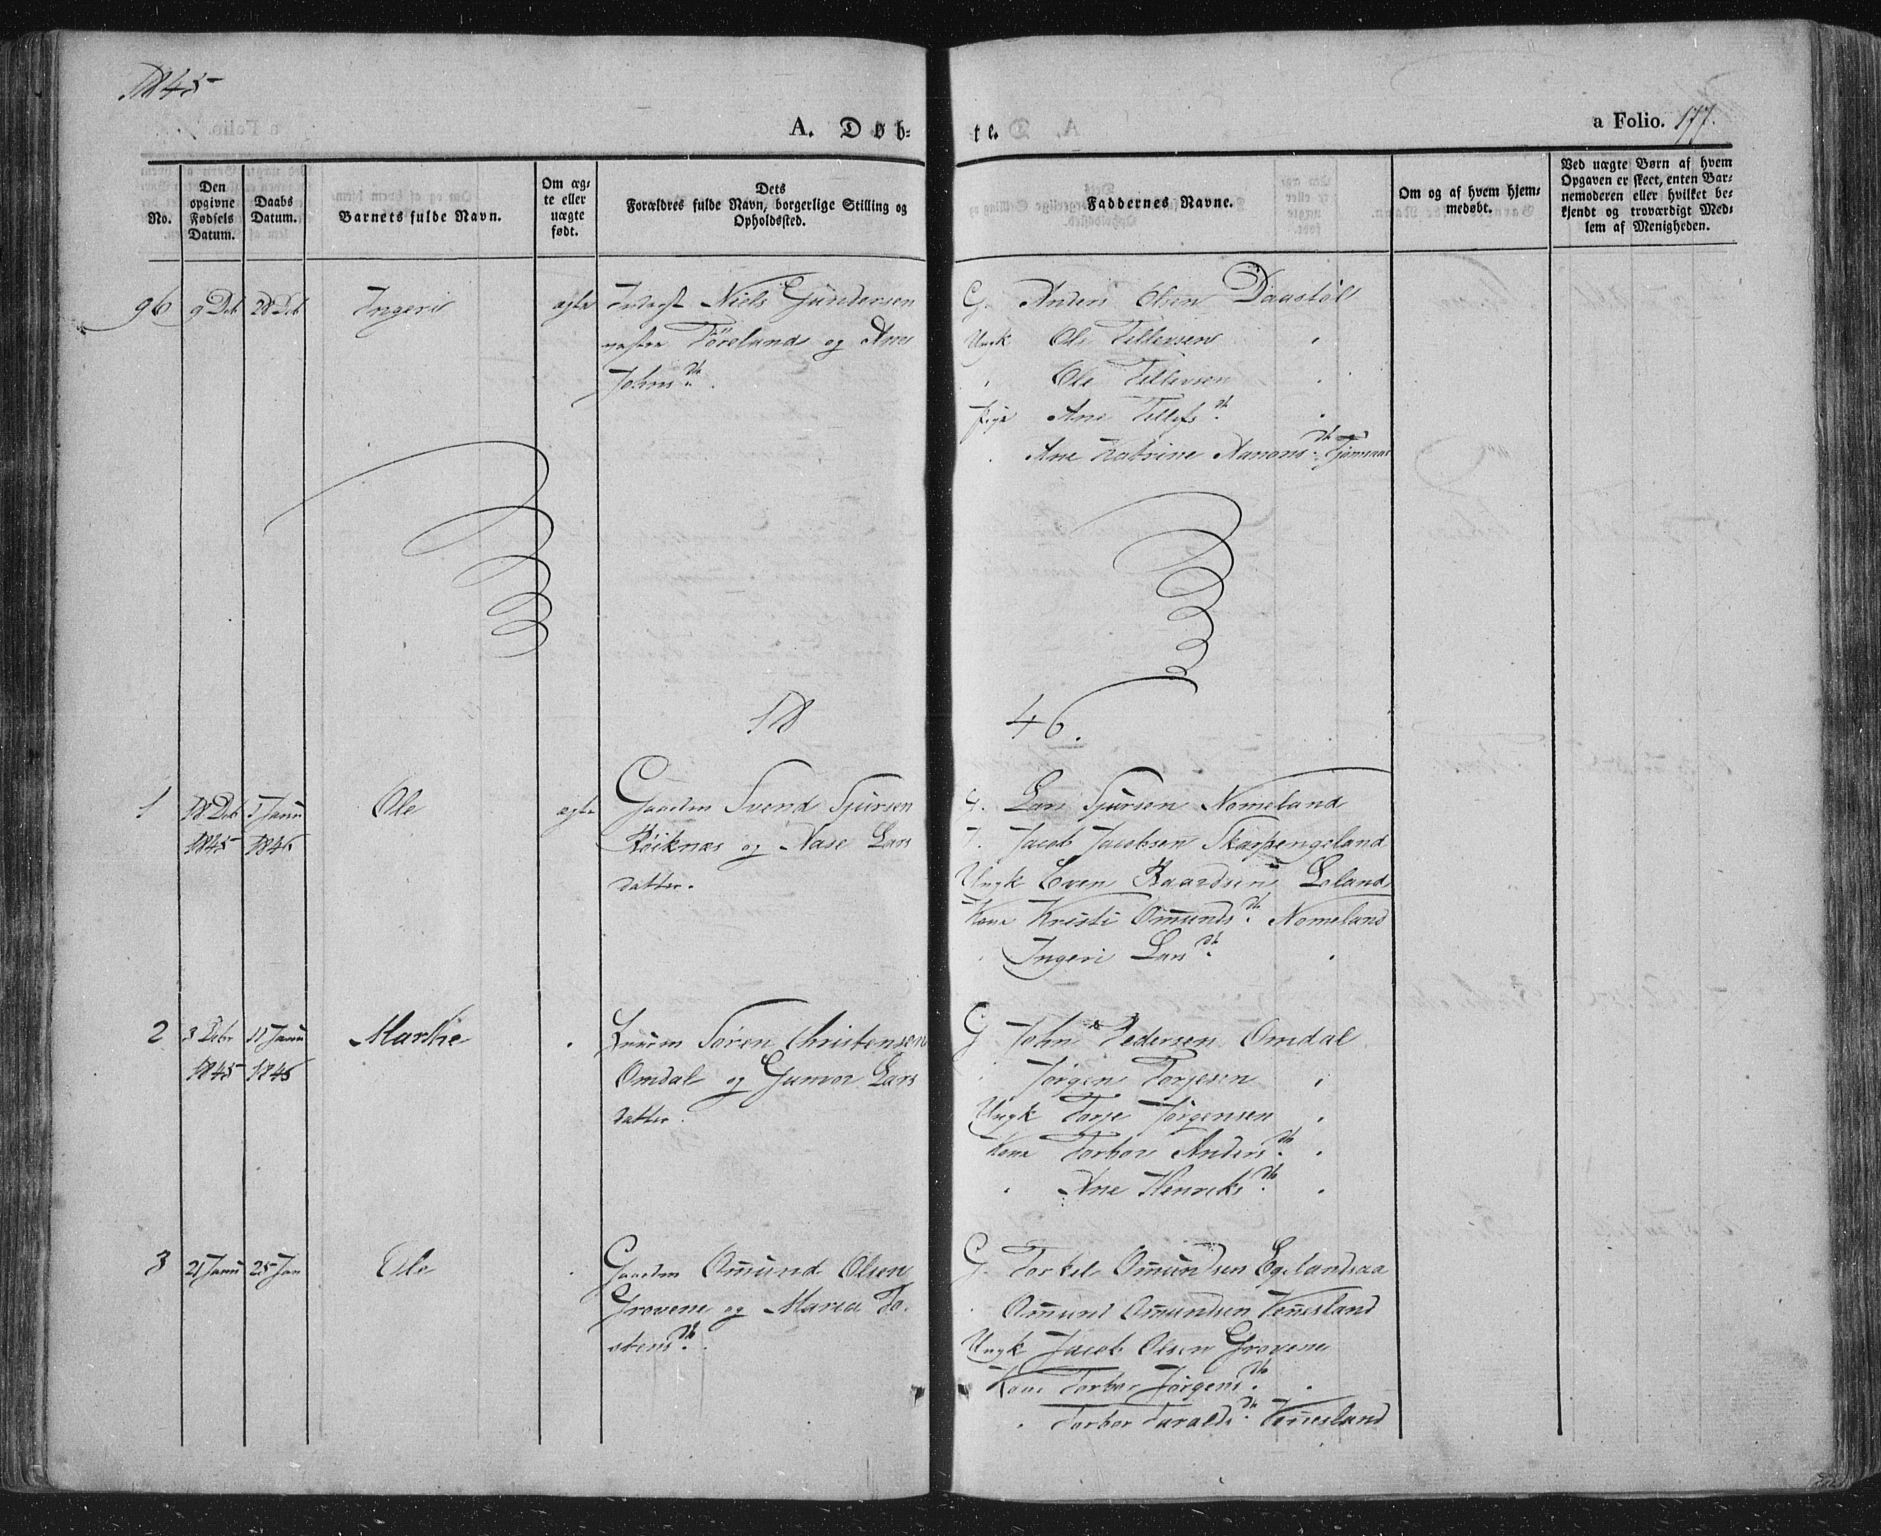 1845
A. Døb-
te.
a Folio. 177.
No.
Den opgivne Fødsels Datum.
Daabs Datum.
Barnets fulde Navn.
Om æg-
te eller
uægte
født.
Dets
Forældres fulde Navn, borgerlige Stilling og
Opholdssted.
Faddernes Navne.
Om og af hvem hjem-
medøbt.
Ved uægte Børn af hvem
Opgaven er skeet, enten Bar-
nemoderen eller hvilket be-
kjendt og troværdigt Med-
lem af Menigheden.
96 9 Deb 28 Deb Ingeri ægte Inderst Niels Gundersen
Føreland og Ane
Johns dt.
G. Anders Olsen Daastøl
Ungk Ole Tellevsen "
" Ole Tellevsen "
Pige Ane Tellefs dt. "
" Ane Katrine Aanons dt.
18
46.
1 18 Deb 1 Janu Ole ægte Gaardm Svend Sjursen
1845 1846 Røiknæs og Aase Lars
datter.
G. Lars Sjursen Nomeland
". Jacob Jacobsen Skarpengeland
Ungk Even Baardsen Leland
Kone Kristi Omunds dt. Nomeland
" Ingeri Lars dt. "
2 3 Debr 11 Janu Marthe " Søren Christensen
1845 1846 Omdal og Gunvor Lars
datter.
G John Pedersen Omdal
" Jørgen Torjesen "
Ungk Torje Jørgensen "
Kone Torbor Anders dt. "
" Ane Henriks dt. "
3 21 Janu 25 Jan Ole " Gaardm Omund Olsen
Grovene og Maren To-
stens dt.
G. Torkel Omundsen Egelandsaa
" Omund Omundsen Vennesland
Ungk Jacob Olsen Grovene
Kone Torbor Jørgens dt. "
" Torbor Taralds dt. Vennesland